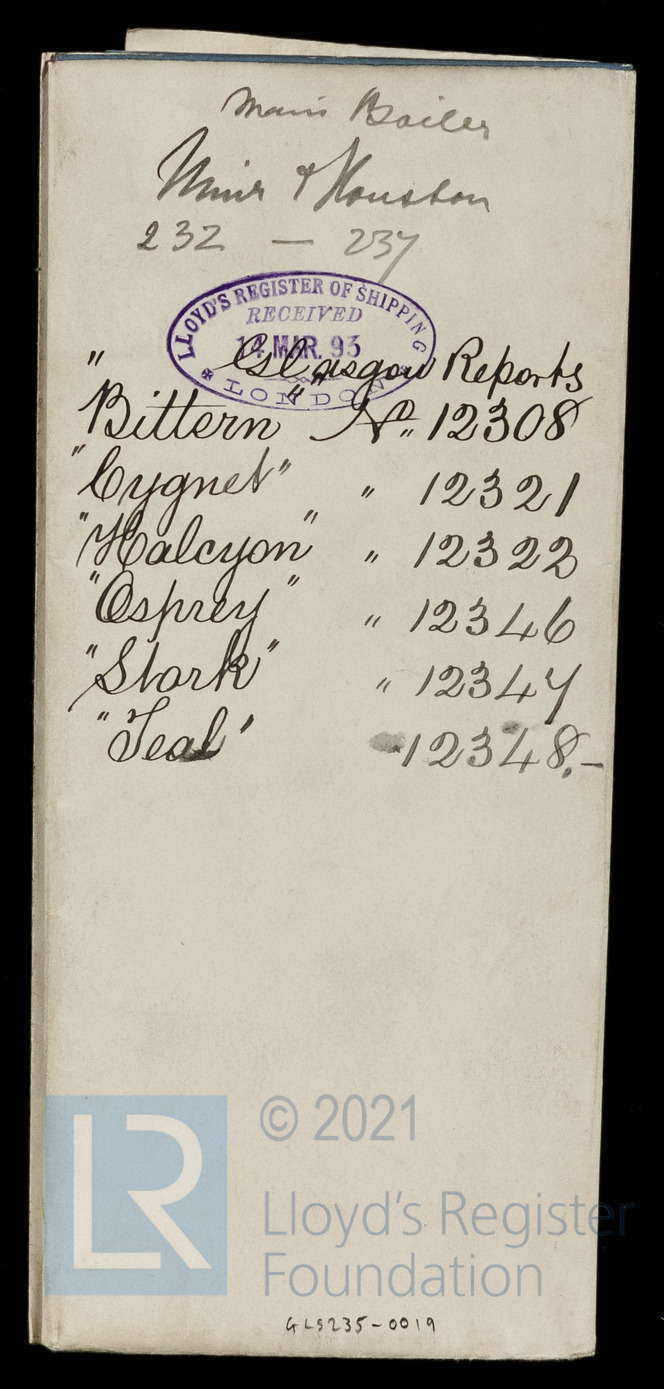 Main Boiler
Muir & Houston
232 — 237
LLOYD'S REGISTER OF SHIPPING
RECEIVED
14 MAR. 93
LONDON
Glasgow Reports
"Bittern" No. 12308
"Cygnet" " 12321
"Halcyon" " 12322
"Osprey" " 12346
"Stork" " 12347
"Teal" 12348.–
LR
© 2021
Lloyd's Register
Foundation
GLS235-0019